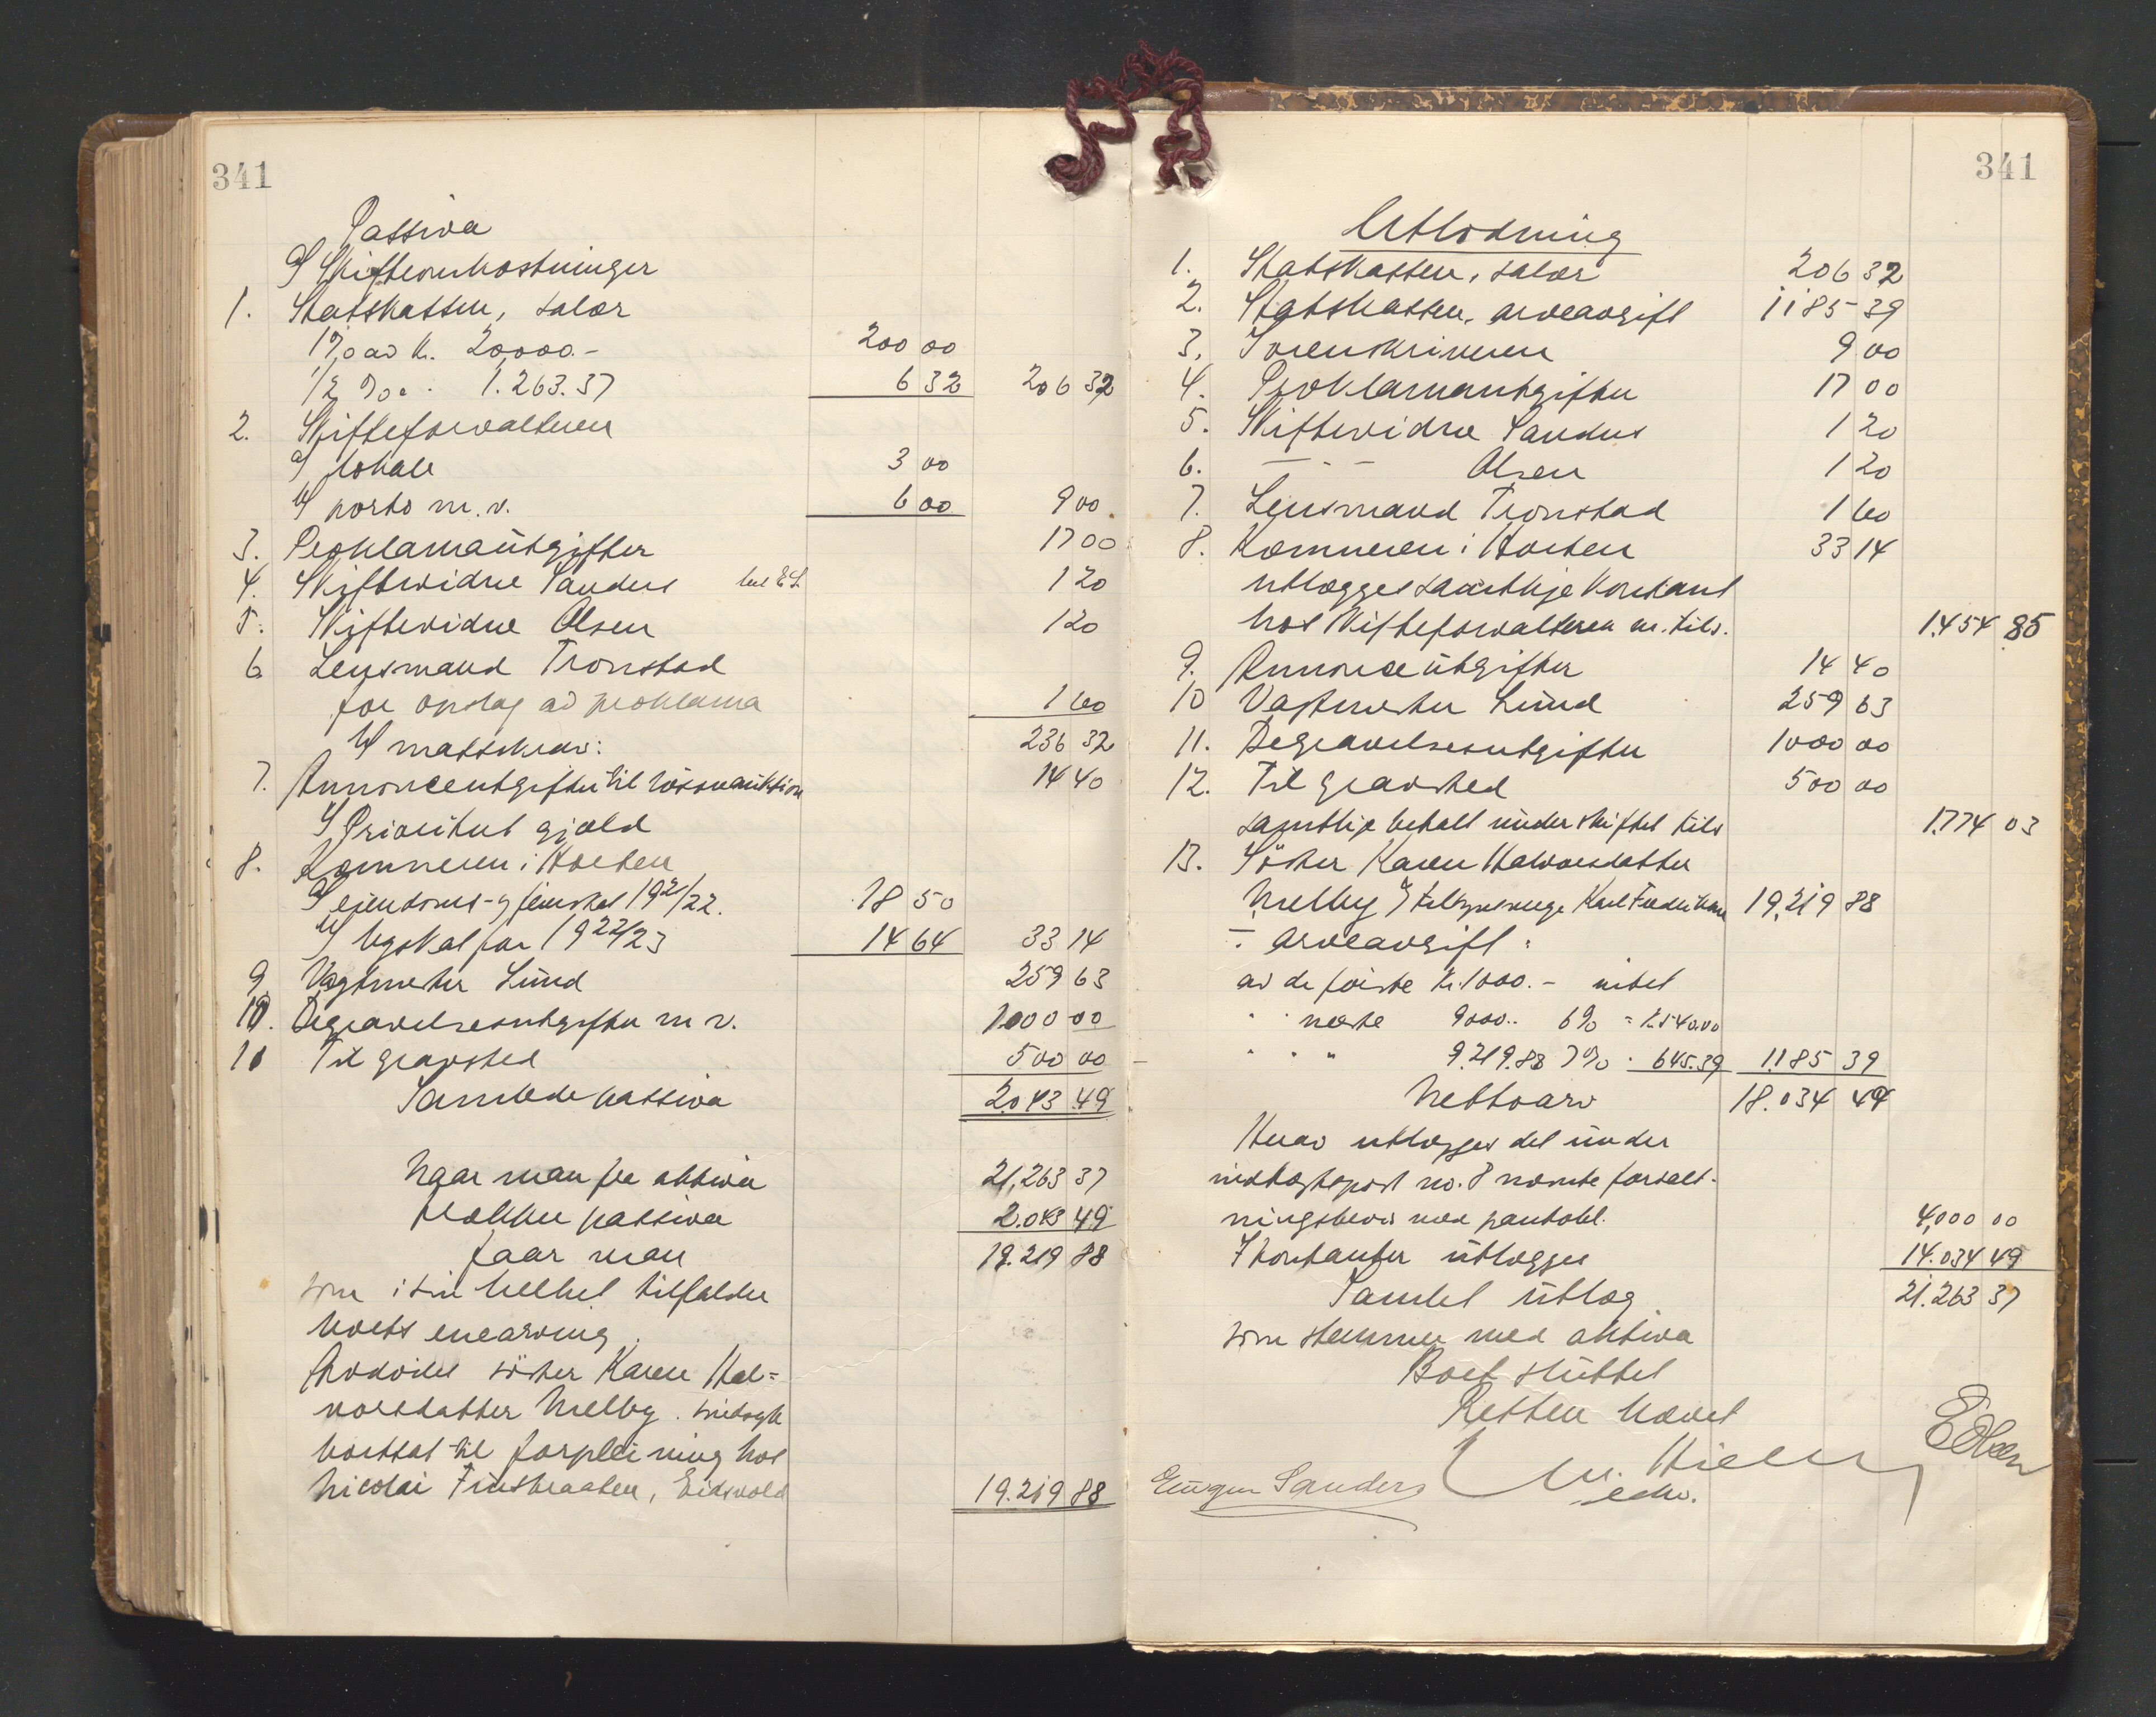 341
Passiva
a/ Skifteomkostninger
1. Statskassen, salær
1% av kr. 20,000.-
1/2 % " " 1.263.37
200 00
6 32 206 32
2. Skifteforvalteren
a/ lokale 3 00
b/ porto m.v. 6 00 9 00
3. Proklamautgifter 17 00
4. Skiftevidne Sanders 1 20
5. Skiftevidne Olsen 1 20
6 Lensmand Tronstad
for opslag av proklama 1 60
b/ massekrav: 236 32
7. Annonceutgifter til løsøreauktion 14 40
c/ Prioritert gjæld
8. Kæmneren i Horten
a/ eiendoms- og feieskat 1921/22. 18 50
b/ byskat for 1922/23 14 64 33 14
9 Vagtmester Lund 259 63
10. Begravelsesutgifter m v. 1000 00
11 Til gravsted 500 00
Samlede passiva 2.043 49
Naar man fra aktiva 21,263 37
trækker passiva 2.043 49
faar man 19.219 88
som i sin helhet tilfalder
boets enearving
Avdødes søster Karen Hal=
vorsdatter Melby. sindssyk
bortsat til forpleining hos
Nicolai Finsbraaten, Eidsvold 19.219 88
341
Utlodning
1. Statskassen, salær 206 32
2. Statskassen, arveavgift 1185 39
3. Sorenskriveren 9 00
4. Proklamautgifter 17 00
5. Skiftevidne Sanders 1 20
6. — " — Olsen 1 20
7. Lensmand Tronstad 1 60
8. Kæmneren i Horten 33 14
utlægges samtlige kontant
hos skifteforvalteren m. tils. 1.454 85
9. Annonceutgifter 14 40
10 Vagtmester Lund 259 63
11. Begravelsesutgifter 1000 00
12. Til gravsted 500 00
samtlige betalt under skiftet tils 1.774 03
13. Søster Karen Halvorsdatter
Melby v/ tilsynsverge Karl Fredriksen 19,219 88
÷ arveavgift:
av de første kr. 1000.- intet
" " næste 9000.. 6% = kr. 540.00
" " " 9.219.88 7% " 645.39 1.185 39
Nettoarv 18.034 49
Herav utlægges det under
indtægtspost no. 8 nævnte forvalt-
ningsbevis med pantobl. 4,000 00
I kontanter utlægges 14.034 49
Samlet utlæg 21.263 37
som stemmer med aktiva
Boet sluttet
Retten hævet
Eugen Sanders
E Olsen